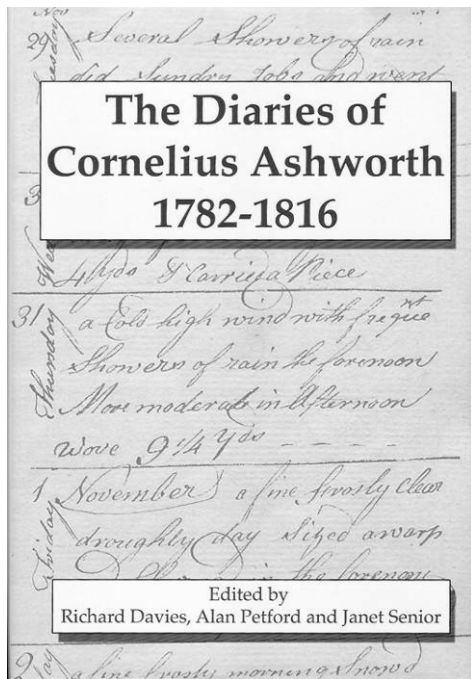 29 Tuesday Several Showers of rain
did Sundry Jobs and went
The Diaries of
Cornelius Ashworth
1782-1816
4 yds & Carried a Piece
31 Thursday a Cold high wind with freque nt
Showers of rain the forenoon
More moderate in Afternoon
wove 9 1/4 yds - - - - -
1 Friday November a fine frosty clear
droughty day Sized a warp
in the forenoon
Edited by
Richard Davies, Alan Petford and Janet Senior
2 a fine frosty morning Snowd